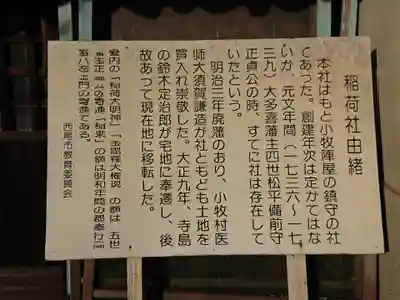 稲荷社由緒
本社はもと小牧陣屋の鎮守の社
であった。創建年次は定かではな
いか、元文年間(一七三六~一七
三九)大多喜藩主四世松平備前守
正貞公の時、すでに社は存在して
いたという。
明治三年廃藩のおり、小牧村医
師大須賀謙造が社ともども土地を
買入れ崇敬した。大正九年、寺島
の鈴木定治郎が宅地に奉遷し、後
故あって現在地に移転した。
堂内の「稲荷大明神」「玉
大権現」の額は、五世
公の寄進「稲荷」の額は明和年間の郡奉行
門の寄進である。
西尾市教育委員会